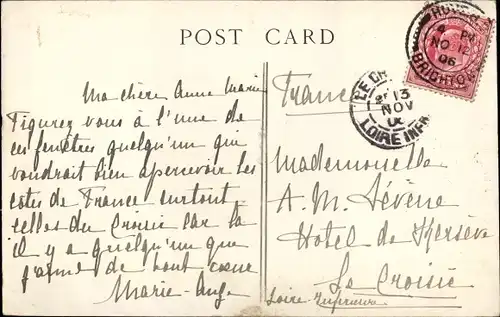 POST CARD
HOVE
8 PM
NO 12
06
BRIGHTON
LE CR
13
NOV
LOIRE INFRE
Ma chère Anne Marie
Figurez vous à l'une de
ces fenêtres quelqu'un qui
voudrait bien apercevoir les
côtes de France surtout
celles du Croisic car là
il y a quelqu'un que
j'aime de tout cœur
Marie-Ange
France
Mademoiselle
A. M. Sévène
Hotel de Kersévé
Le Croisic
Loire-Inférieure